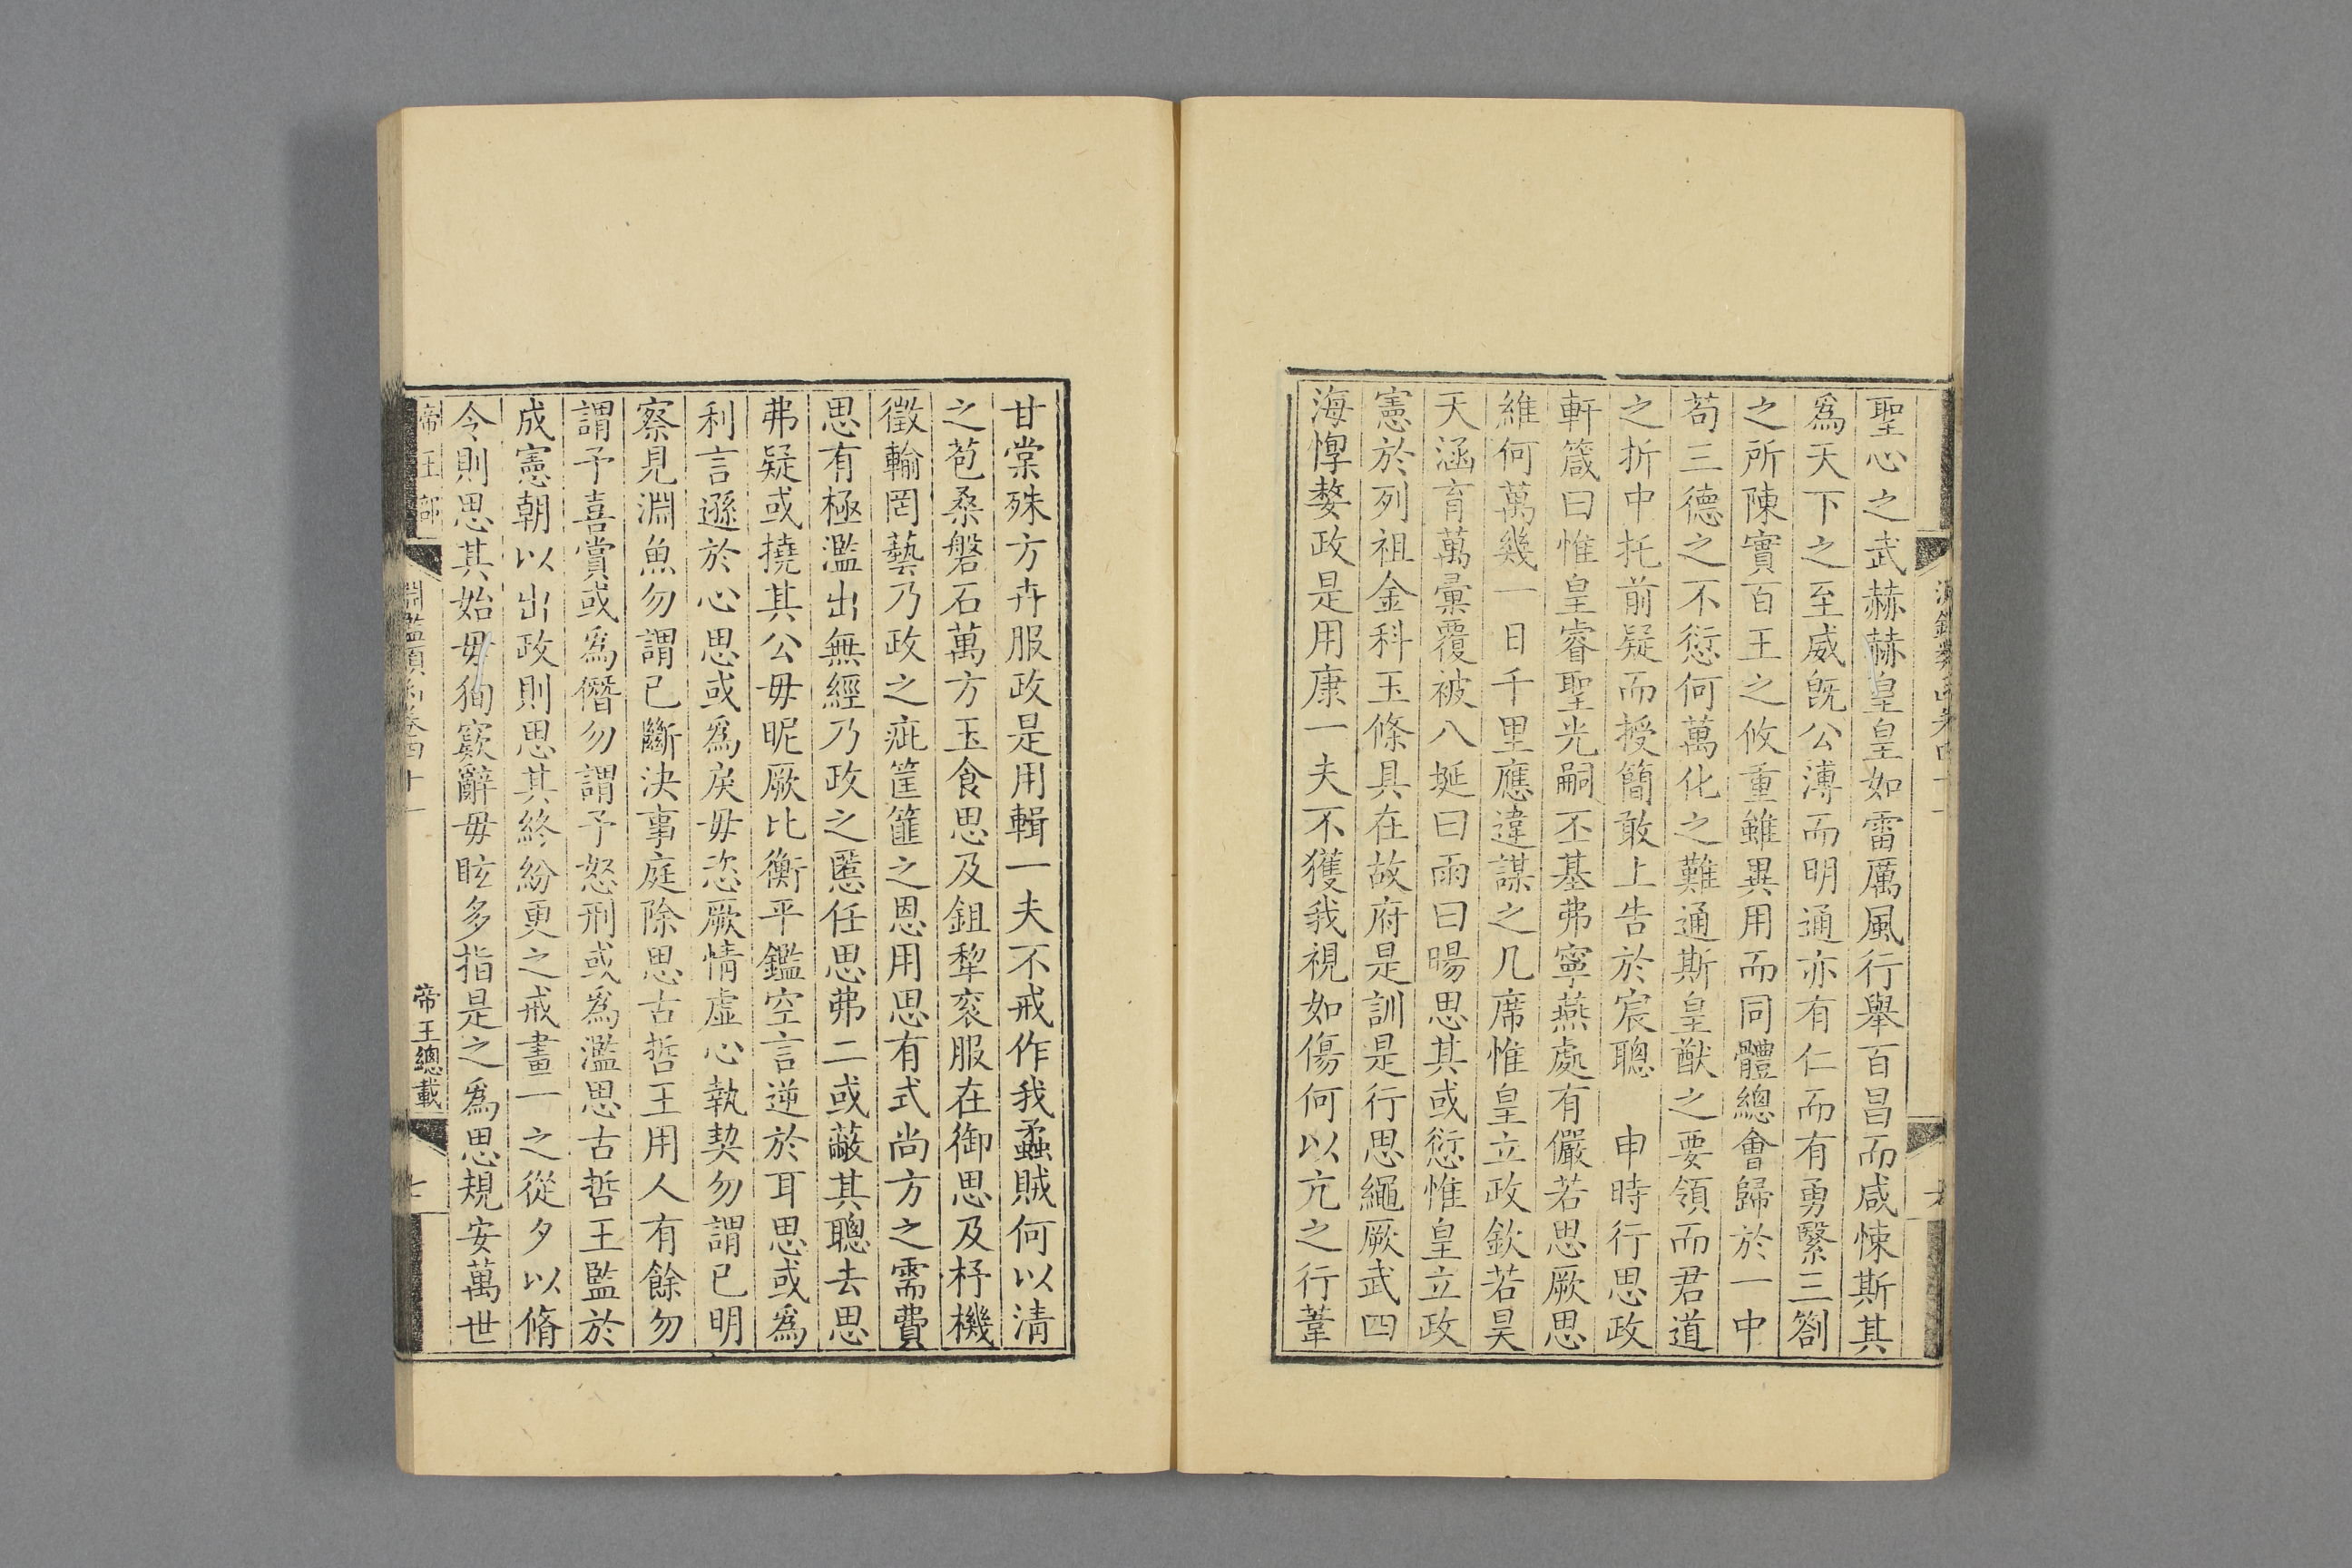 聖心之武赫赫皇皇如雷厲風行舉百昌而咸悚斯其
爲天下之至威旣公溥而明通亦有仁而有勇繄三劄
之所陳實百王之攸重雖異用而同體總會歸於一中
苟三德之不愆何萬化之難通斯皇猷之要領而君道
之折中托前疑而授簡敢上告於宸聰 申時行思政
軒箴曰惟皇睿聖光嗣丕基弗寧燕處有儼若思厥思
維何萬幾一日千里應違謀之几席惟皇立政欽若昊
天涵育萬彙覆被八埏曰雨曰暘思其或愆惟皇立政
憲於列祖金科玉條具在故府是訓是行思繩厥武四
海惸嫠政是用康一夫不獲我視如傷何以亢之行葦
甘棠殊方卉服政是用輯一夫不戒作我蟊賊何以淸
之苞桑磐石萬方玉食思及鉏犂衮服在御思及杼機
徵輸罔藝乃政之疵筐篚之恩用思有式尚方之需費
思有極濫出無經乃政之慝任思弗二或蔽其聰去思
弗疑或撓其公毋昵厥比衡平鑑空言逆於耳思或爲
利言遜於心思或爲戾毋恣厥情虛心執契勿謂已明
察見淵魚勿謂已斷決事庭除思古哲王用人有餘勿
謂予喜賞或爲僭勿謂予怒刑或爲濫思古哲王監於
成憲朝以出政則思其終紛更之戒畫一之從夕以脩
今則思其始毋狥窾辭毋眩多指是之爲思規安萬世
帝王部
淵鑑類函卷四十一
帝王總載